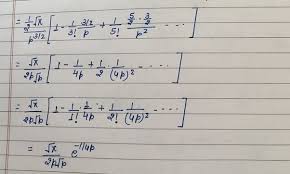 = 1/2 √π / p^{3/2} [ 1 - 1/3! 3/2 / p + 1/5! 5/2 · 3/2 / p² - ···· ]
= √π / 2p√p [ 1 - 1/4p + 1/2 1/(4p)² - ···· ]
= √π / 2p√p [ 1 - 1/1! · 1/4p + 1/2! 1/(4p)² - ···· ]
= √π / 2p√p e^{-1/4p}